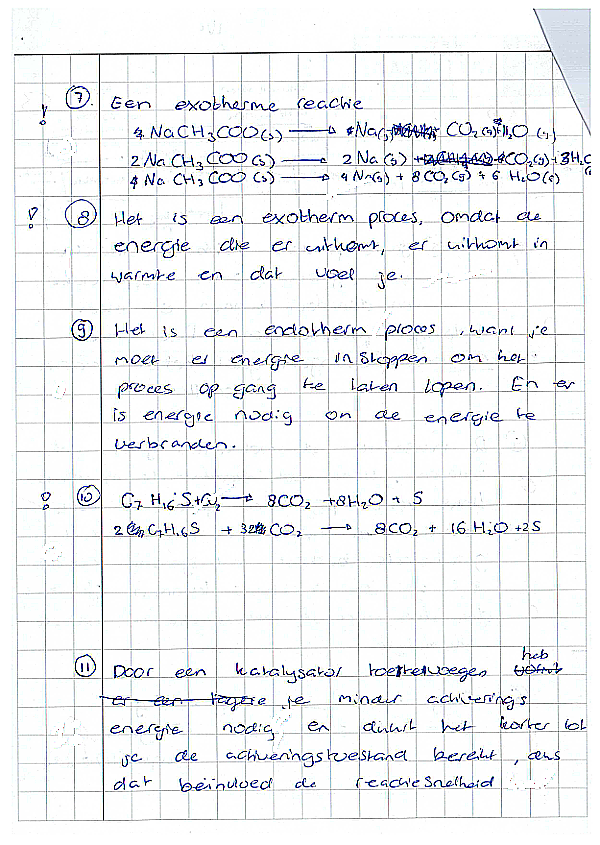 ! 7. Een exotherme reactie
4 NaCH3COO(s) → 4Na(s) CO2(g)+H2O(g)
2 NaCH3COO(s) → 2 Na(s) + 4CO2(g) + 3H2O
4 Na CH3 COO(s) → 4 Na(s) + 8CO2(g) + 6 H2O(g)
? 8 Het is een exotherm proces, omdat de
energie die er uitkomt, er uitkomt in
warmte en dat voel je.
9 Het is een endotherm proces, want je
moet er energie instoppen om het
proces op gang te laten lopen. En er
is energie nodig om de energie te
verbranden.
10 C7H16S+ → 8CO2 + 8H2O + S
2 C7H16S + 32 CO2 → 8CO2 + 16 H2O + 2S
11 Door een katalysator toe te voegen heb
er een lagere je minder activerings
energie nodig en duurt het korter tot
je de activeringstoestand bereikt, dus
dat beïnvloed de reactiesnelheid